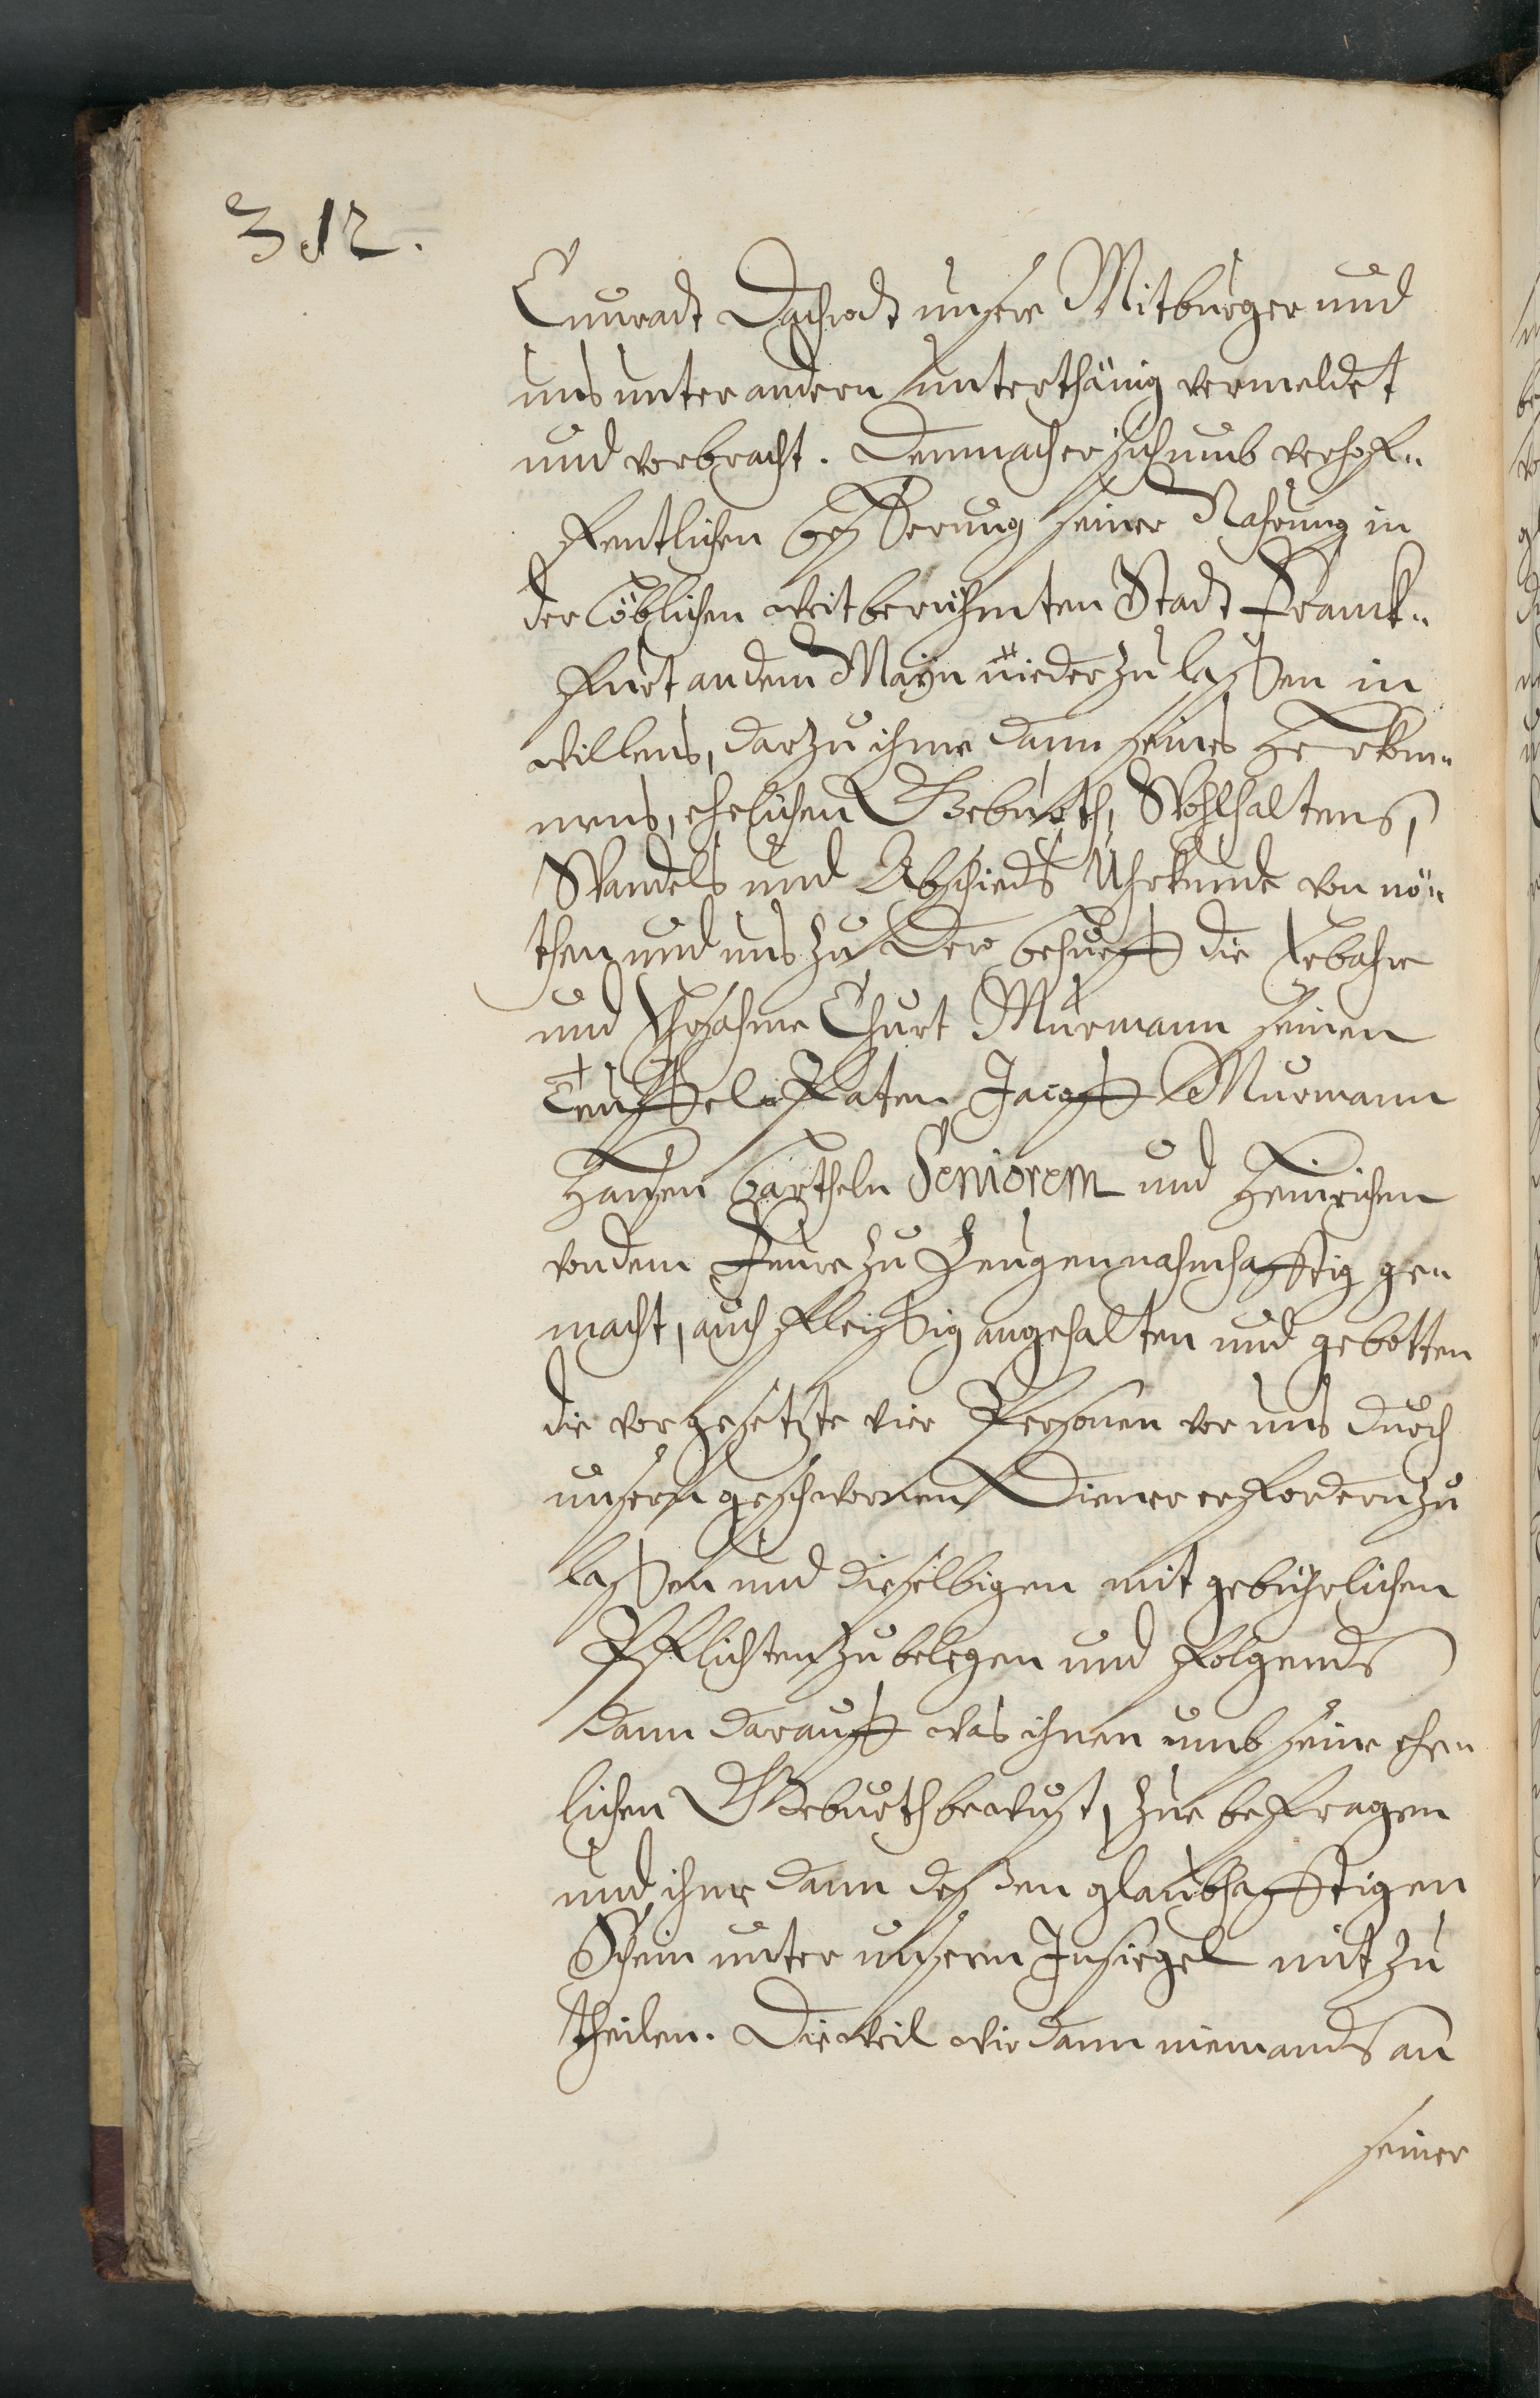 312.
Cunradt Dachrodt unsere Mitbürger und
uns unter andern unterthänig vermeldet
und vorbracht. Demnach er sich umb verhof„
fentlichen besserung seiner Nahrung in
der löblichen weitberühmten Stadt Franck„
furt an dem Mayn nieder zu lassen in
willens, darzu ihme dann seines Herkom„
mens, ehelichen Geburth, Wohlhaltens,
Wandels und Abschieds Uhrkunde von nö„
then und uns zu dero behueff die Erbahre
und Ehrsahme Churt Murmann seinen
Tauffel Paten Jacoff Murmann
Hansen Bartheln Seniorem und Heinrichen
von dem Feure zu Zeugen nahmhafftig ge„
macht, auch fleissig angehalten und gebotten
die vorgesetzte vier Personen vor uns durch
unsern geschwornen Diener erfordern zu
lassen und dieselbigen mit gebührlichen
Pflichten zu belegen und folgends
dann darauff was ihnen umb seine ehe„
lichen Geburth bewust, zue befragen
und ihme dann dessen glaubhafftigen
Schein unter unserm Insiegel mit zu
theilen. Dieweil wir dann niemands an
seiner